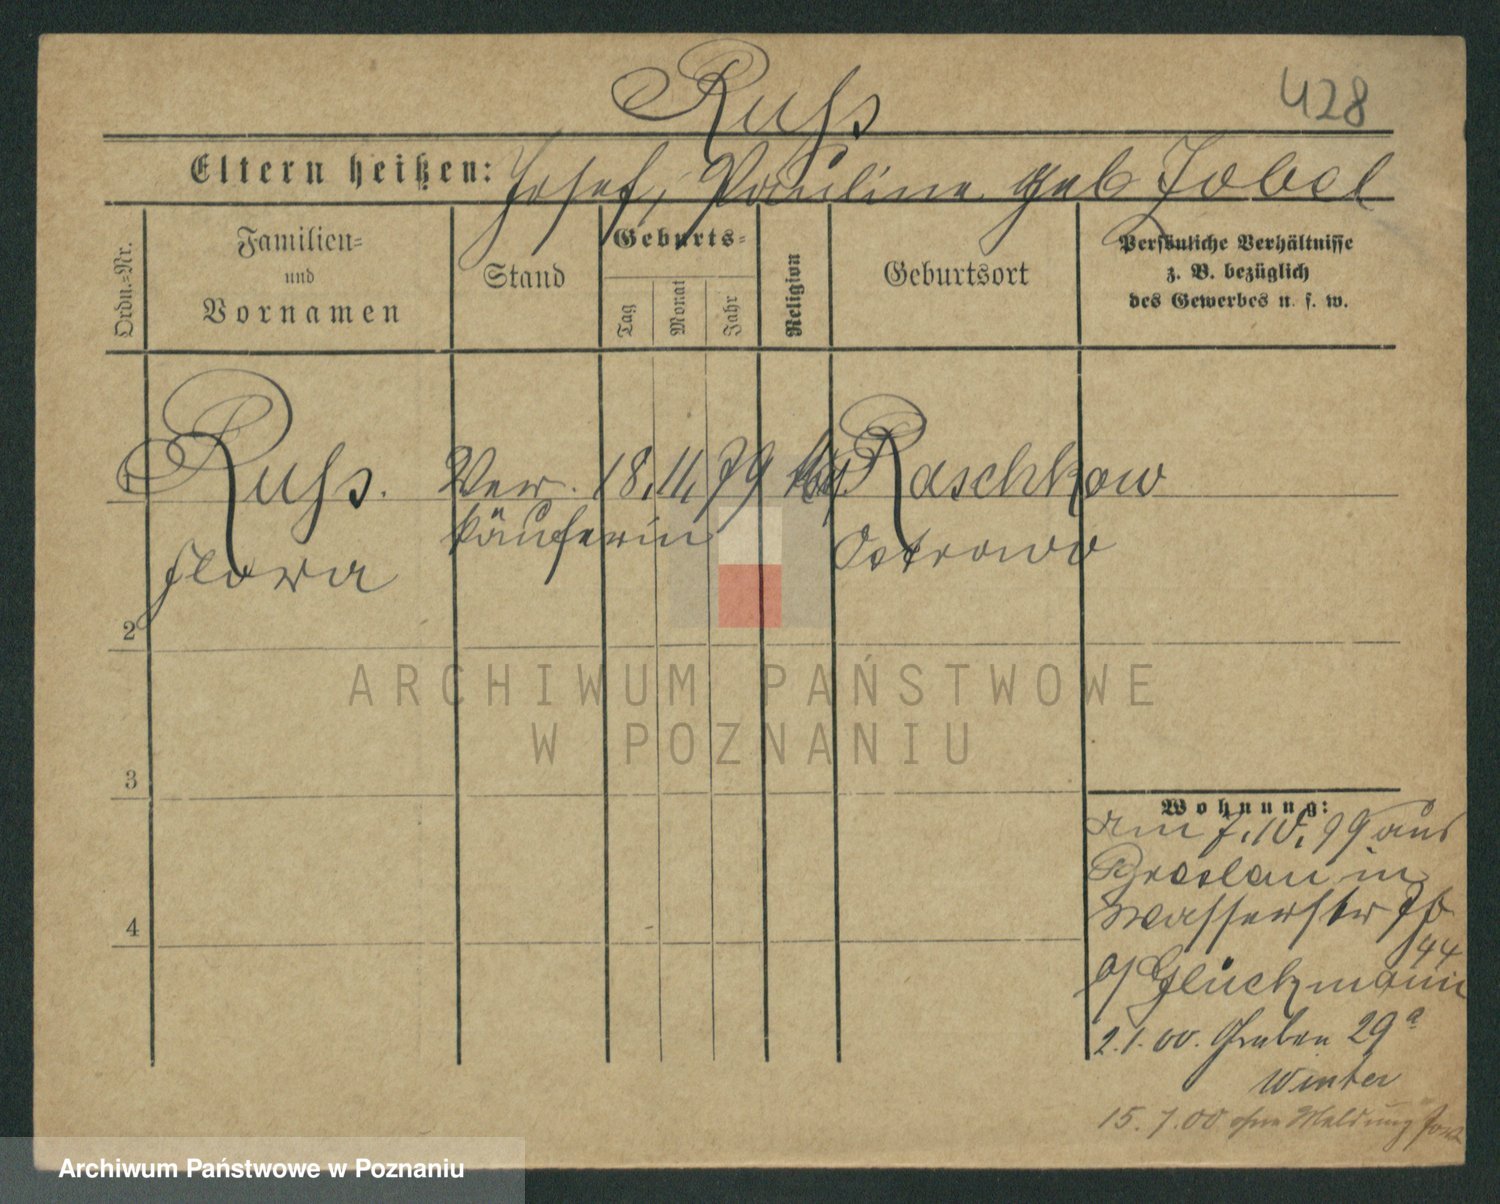 Russ
428
Eltern heißen: Josef, Pauline geb Zobel
Ordn.-Nr.
Familien-
und
Vornamen
Stand
Geburts-
Tag
Monat
Jahr
Religion
Geburtsort
Persönliche Verhältnisse
z. B. bezüglich
des Gewerbes u. s. w.
1 Russ. Ver- 18. 11. 79 Raschkow
Flora käuferin Ostrowo
2
3
4
ARCHIWUM PAŃSTWOWE
W POZNANIU
Wohnung:
Am 7. 10. 99 aus
Breslau in
Wasserstr
b/ Glückmann
2. 1. 00. Graben 29a
Winter
15. 7. 00 ohne Meldung fort
Archiwum Państwowe w Poznaniu